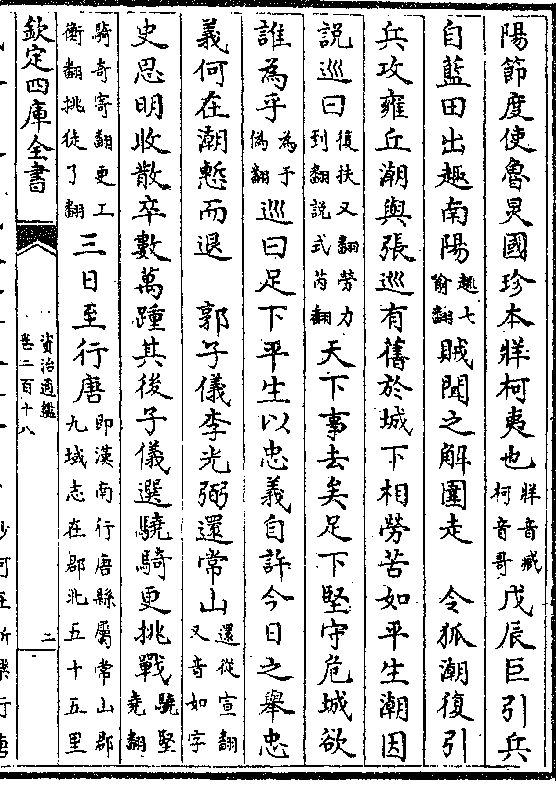 陽節度使魯炅國珍本牂柯夷也牂音臧柯音哥戊辰巨引兵
自藍田出趣南陽趣七喻翻賊聞之解圍走　令狐潮復引
兵攻雍丘潮與張巡有舊於城下相勞苦如平生潮因
説巡曰復扶又翻勞力到翻説式芮翻天下事去矣足下堅守危城欲
誰為乎為于偽翻巡曰足下平生以忠義自許今日之舉忠
義何在潮慙而退　郭子儀李光弼還常山還從宣翻又音如字
史思明收散卒數萬踵其後子儀選驍騎更挑戰驍堅堯翻
騎奇寄翻更工衡翻挑徒了翻三日至行唐即漢南行唐縣屬常山郡九域志在郡北五十五里
欽定四庫全書
資治通鑑
卷二百十八
二